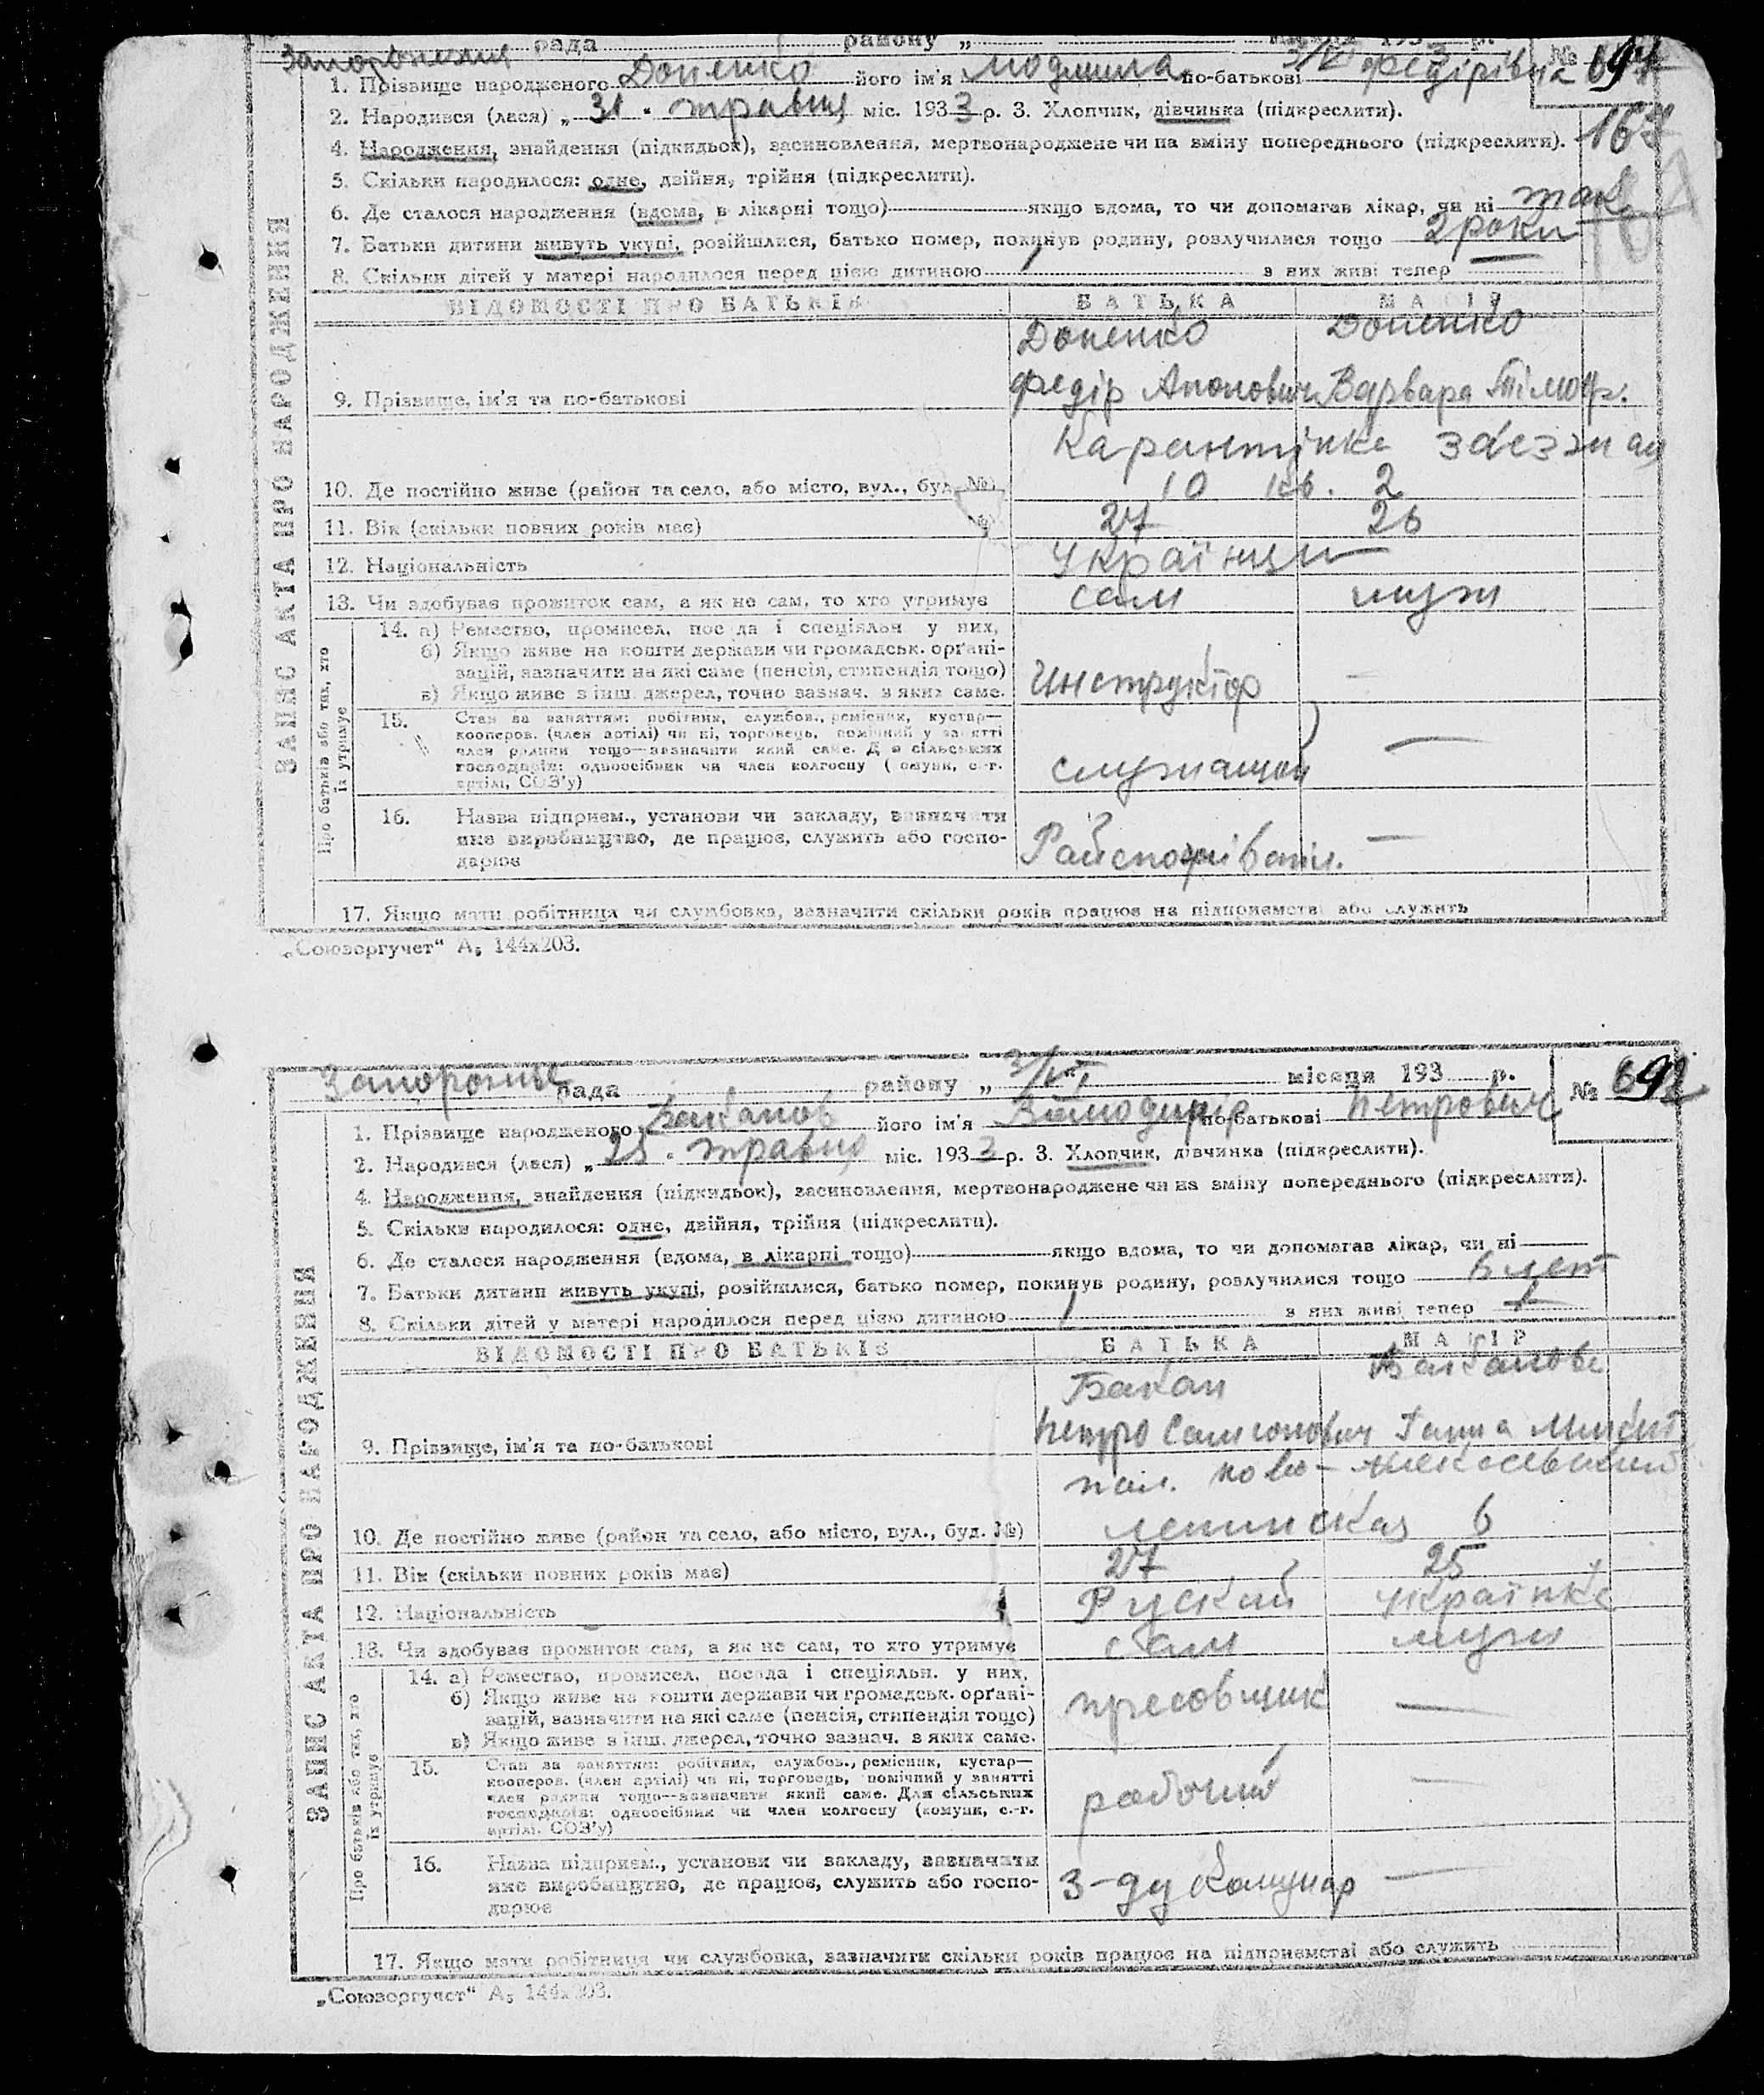 Запоріжжя рада району „ 3/VI місяця 193 3 р. № 691
1. Прізвище народженого Доценко його ім'я Людмила по-батькові Федірівна
2. Народився (лася) „ 31 " травня міс. 193 3 р. 3. Хлопчик, дівчинка (підкреслити).
167
4. Народження, знайдення (підкидьок), засиновлення, мертвонароджене чи на зміну попереднього (підкреслити).
5. Скільки народилося: одне, двійня, трійня (підкреслити).
6. Де сталося народження (вдома, в лікарні тощо) якщо вдома, то чи допомагав лікар, чи ні так
7. Батьки дитини живуть укупі, розійшлися, батько помер, покинув родину, розлучилися тощо 2 роки
8. Скільки дітей у матері народилося перед цією дитиною 1 з них живі тепер —
ВІДОМОСТІ ПРО БАТЬКІВ БАТЬКА МАТІР
Доценко Доценко
9. Прізвище, ім'я та по-батькові Федір Варвара Тимоф.
Карантінка
10. Де постійно живе (район та село, або місто, вул., буд. №) 10 кв. 2
11. Вік (скільки повних років має) 27 26
12. Національність Українци
13. Чи здобуває прожиток сам, а як не сам, то хто утримує сам муж
14. а) Ремество, промисел, посада і спеціяльн. у них,
б) Якщо живе на кошти держави чи громадськ. орґані-
зацій, зазначити на які саме (пенсія, стипендія тощо)
в) Якщо живе з інш. джерел, точно зазнач. з яких саме. Инструктор —
15. Стан за заняттям: робітник, службов., ремісник, кустар—
кооперов. (член артілі) чи ні, торговець, помічний у занятті
член родини тощо—зазначити який саме. Для сільських
господарів: одноосібник чи член колгоспу (комуни, с.-г.
артілі, СОЗ'у) служащой —
16. Назва підприєм., установи чи закладу, зазначити
яке виробництво, де працює, служить або госпо-
дарює Райспоживспіл. —
17. Якщо мати робітниця чи службовка, зазначити скільки років працює на підприємстві або служить
ЗАПИС АКТА ПРО НАРОДЖЕННЯ
Про батьків або тих, хто їх утримує
„Союзоргучет“ А5 144х203.
Запоріжжя рада району „ 3/VI місяця 193 р. № 692
1. Прізвище народженого Баканов його ім'я Володимір по-батькові Петрович
2. Народився (лася) „ 25 " травня міс. 193 3 р. 3. Хлопчик, дівчинка (підкреслити).
4. Народження, знайдення (підкидьок), засиновлення, мертвонароджене чи на зміну попереднього (підкреслити).
5. Скільки народилося: одне, двійня, трійня (підкреслити).
6. Де сталося народження (вдома, в лікарні тощо) якщо вдома, то чи допомагав лікар, чи ні
7. Батьки дитини живуть укупі, розійшлися, батько помер, покинув родину, розлучилися тощо 6 лет
8. Скільки дітей у матері народилося перед цією дитиною 1 з них живі тепер 1
ВІДОМОСТІ ПРО БАТЬКІВ БАТЬКА МАТІР
Бакан Баканова
9. Прізвище, ім'я та по-батькові Петро Самсонович Ганна Микит.
пос. Ново-
10. Де постійно живе (район та село, або місто, вул., буд. №) Ленинская 6
11. Вік (скільки повних років має) 27 25
12. Національність Руский Українка
13. Чи здобуває прожиток сам, а як не сам, то хто утримує сам муж
14. а) Ремество, промисел, посада і спеціяльн. у них,
б) Якщо живе на кошти держави чи громадськ. орґані-
зацій, зазначити на які саме (пенсія, стипендія тощо)
в) Якщо живе з інш. джерел, точно зазнач. з яких саме. пресовщик —
15. Стан за заняттям: робітник, службов., ремісник, кустар—
кооперов. (член артілі) чи ні, торговець, помічний у занятті
член родини тощо—зазначити який саме. Для сільських
господарів: одноосібник чи член колгоспу (комуни, с.-г.
артілі, СОЗ'у) рабочий —
16. Назва підприєм., установи чи закладу, зазначити
яке виробництво, де працює, служить або госпо-
дарює З-ду Комунар —
17. Якщо мати робітниця чи службовка, зазначити скільки років працює на підприємстві або служить
ЗАПИС АКТА ПРО НАРОДЖЕННЯ
Про батьків або тих, хто їх утримує
„Союзоргучет“ А5 144х203.